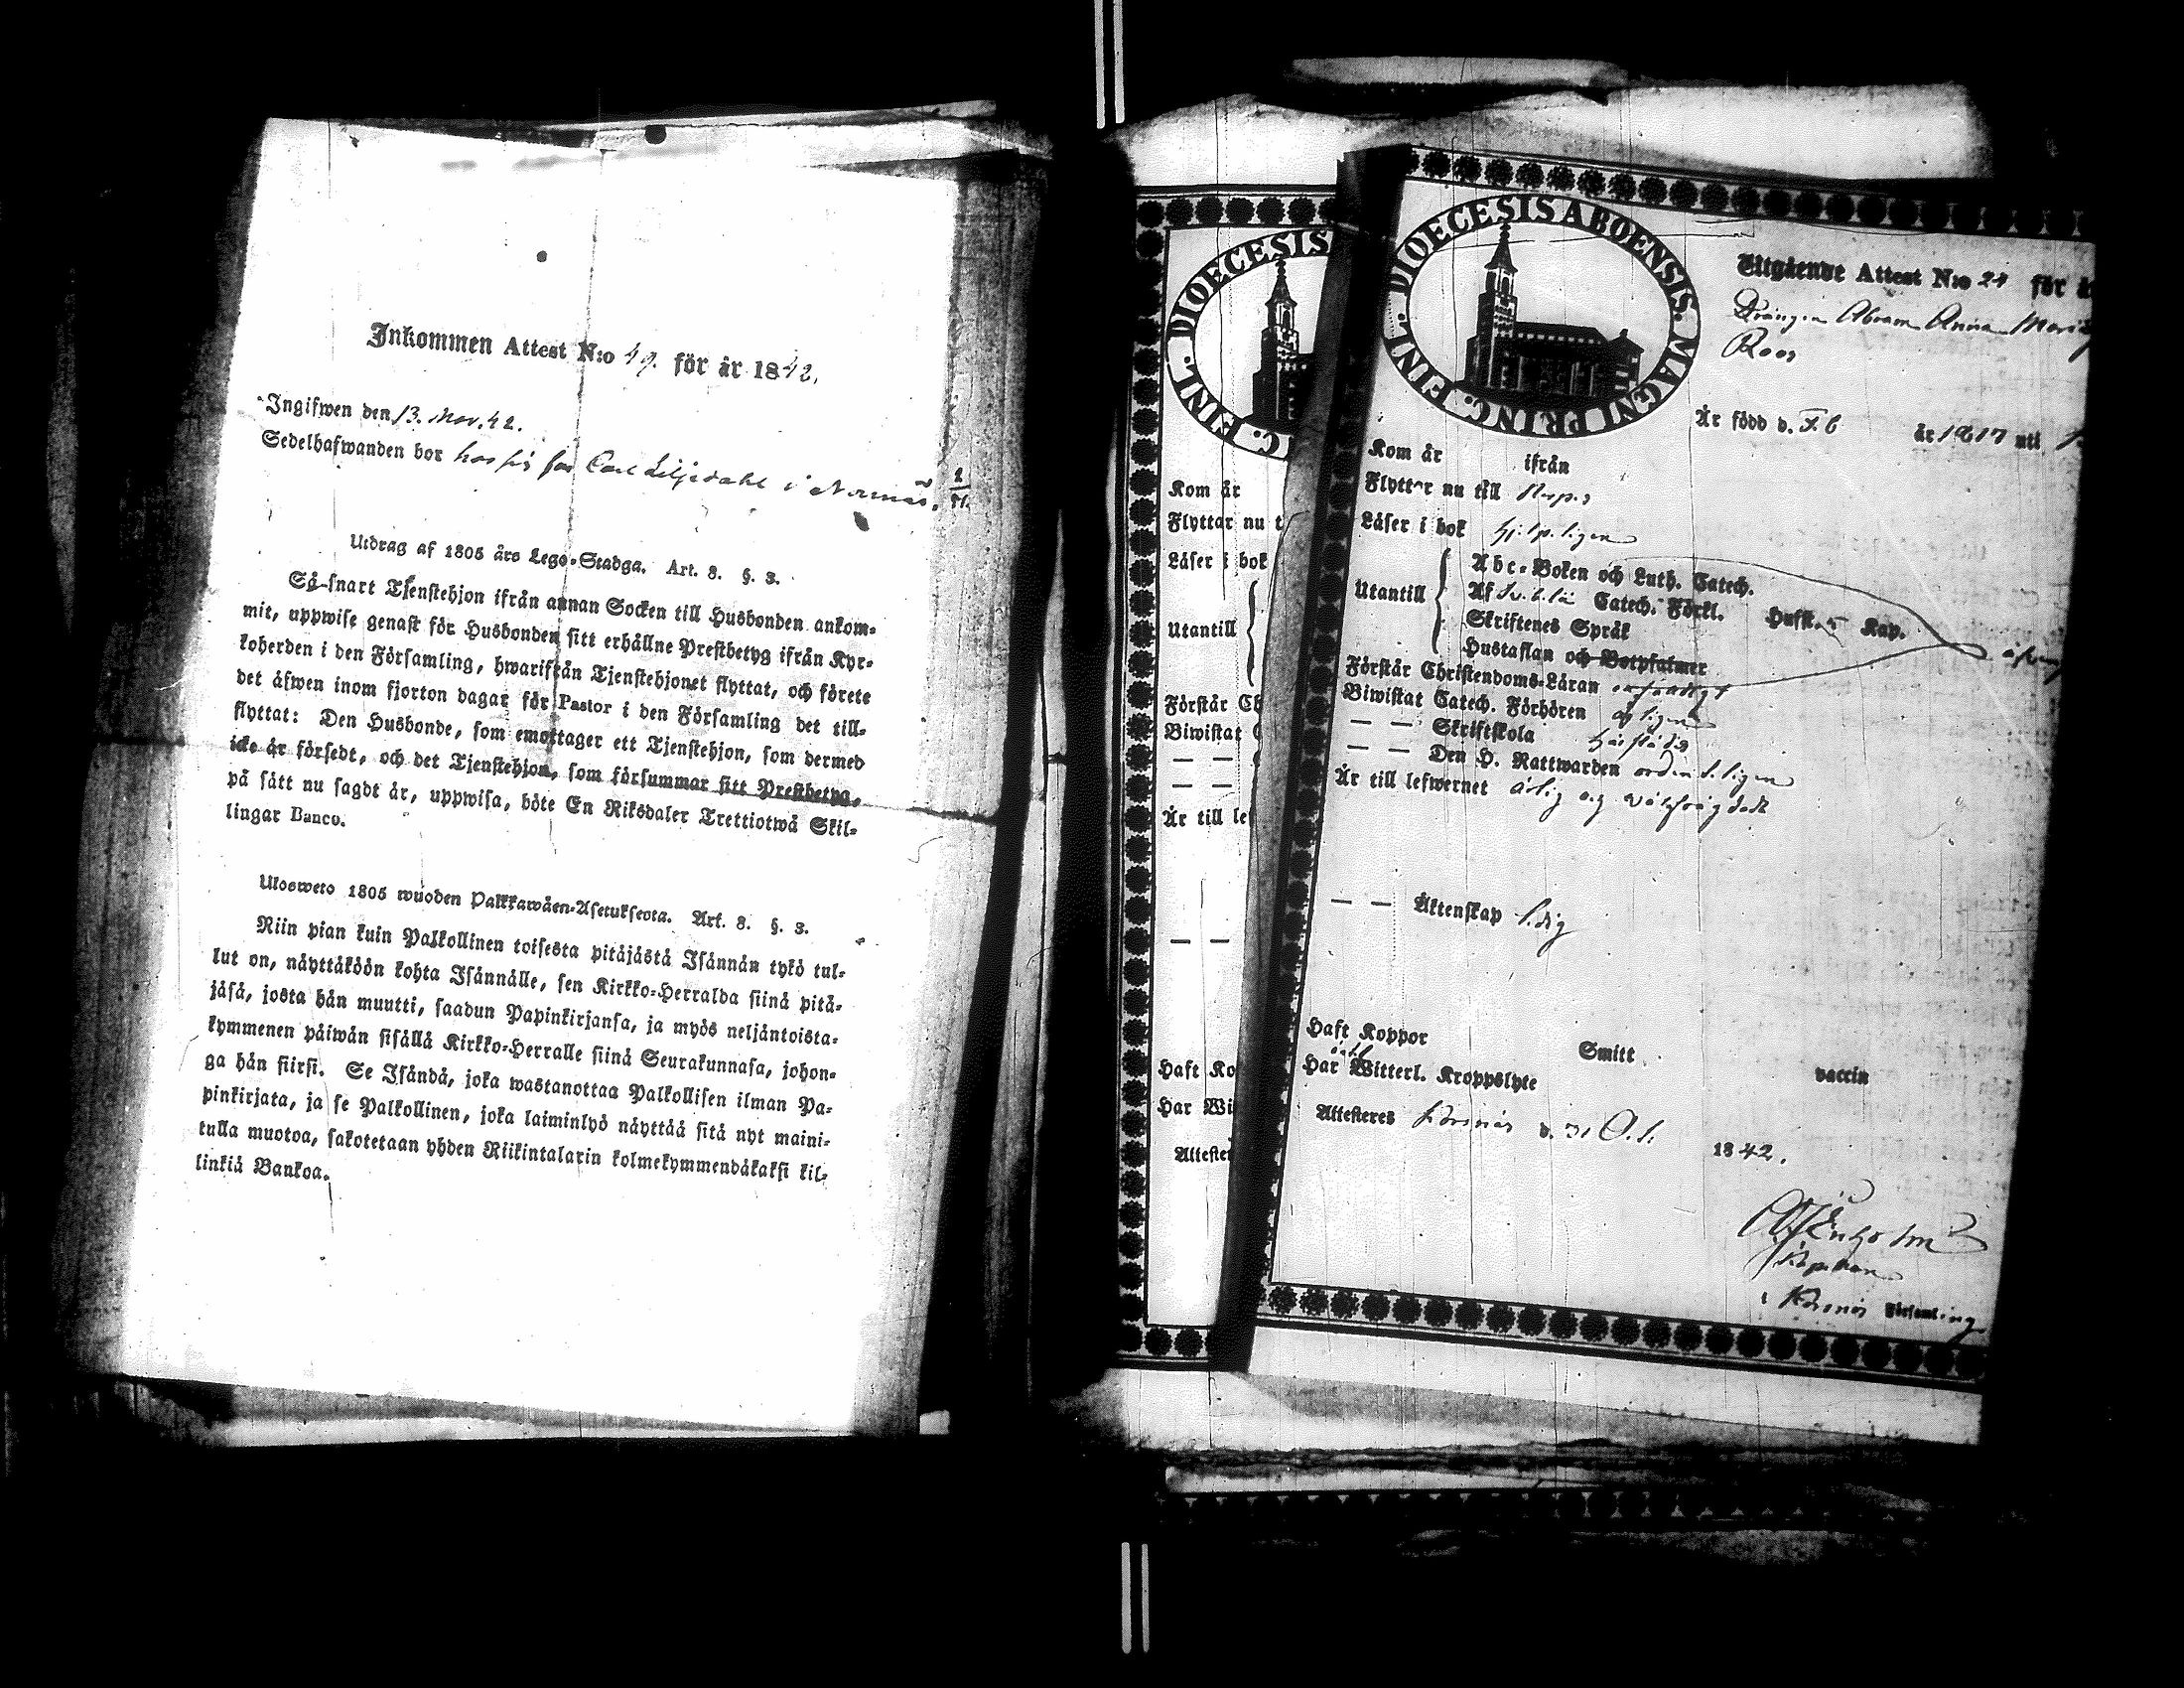 Inkommen Attest N:o 49. för år 1842.
Ingifwen den 13. Nov. 42.
Sedelhafwanden bor hos Carl Liljedahl i
Utdrag af 1805 års Lego-Stadga. Art. 8. §. 3.
Så-snart Tjenstehjon ifrån annan Socken till Husbonden ankom-
mit, uppwise genast för Husbonden sitt erhållne Prestbetyg ifrån Kyr-
koherden i den Församling, hwarifrån Tjenstehjonet flyttat, och förete
det äfwen inom fjorton dagar för Pastor i den Församling det till-
flyttat: Den Husbonde, som emottager ett Tjenstehjon, som dermed
icke är försedt, och det Tjenstehjon, som försummar sitt Prestbetyg,
på sätt nu sagdt är, uppwisa, böte En Riksdaler Trettiotwå Skil-
lingar Banco.
Ulosweto 1805 wuoden Palkkawäen-Asetuksesta. Art. 8. §. 3.
Niin pian kuin Palkollinen toisesta pitäjästä Isännän tykö tul-
lut on, näyttäköön kohta Isännälle, sen Kirkko-Herralda siinä pitä-
jäsä, josta hän muutti, saadun Papinkirjansa, ja myös neljäntoista-
kymmenen päiwän sisällä Kirkko-Herralle siinä Seurakunnasa, johon-
ga hän siirsi. Se Isändä, joka wastanottaa Palkollisen ilman Pa-
pinkirjata, ja se Palkollinen, joka laiminlyö näyttää sitä nyt maini-
tulla muotoa, sakotetaan yhden Riikintalarin kolmekymmendäkaksi kil-
linkiä Bankoa.
DIOECESIS
FINL.
Kom år
Flyttar nu t
Läser i bok
Utantill
Förstår Ch
Biwistat
— —
— —
Är till le
— —
Haft Ko
Har Wi
Attestet
DIOECESIS ABOENSIS. MAGNI PRINC. FINL.
Utgående Attest N:o 24 för å
Drängen Abram Anna Maria
Roos
Är född d. Feb år 1817 uti
Kom år ifrån
Flyttar nu till
Läser i bok hjelpligen
Utantill
Abc-Boken och Luth. Catech.
Af Catech. Förkl.
Skriftenes Språk
Hustaflan och Botpsalmer
Husst. Kap.
Förstår Christendoms-Läran
Biwistat Catech. Förhören årligen
— — Skriftskola
— — Den H. Nattwarden ordenteligen
Är till lefwernet ärlig och wälfrägdad
— — Äktenskap ledig
Haft Koppor Smitt vaccin
Har Witterl. Kroppslyte
Attesteres Korsnäs d. 31 Oct. 1842.
Kapellan
i Korsnäs Församling